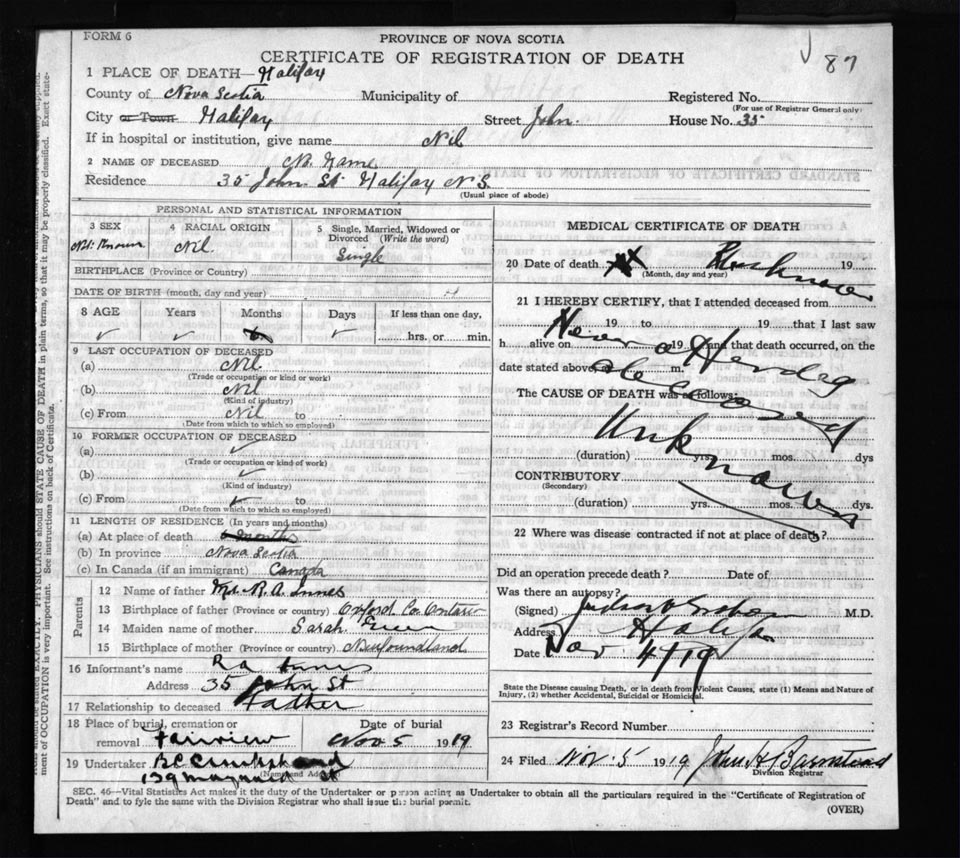 FORM 6
PROVINCE OF NOVA SCOTIA
87
CERTIFICATE OF REGISTRATION OF DEATH
1 PLACE OF DEATH—Halifax
County of Nova Scotia Municipality of Registered No.
(For use of Registrar General only)
City or Town Halifax Street John. House No. 35
If in hospital or institution, give name Nil
2 NAME OF DECEASED No Name
Residence 35 John St Halifax N.S.
(Usual place of abode)
PERSONAL AND STATISTICAL INFORMATION
3 SEX Not Known
4 RACIAL ORIGIN Nil.
5 Single, Married, Widowed or Divorced (Write the word)
Single
BIRTHPLACE (Province or Country)
DATE OF BIRTH (month, day and year)
8 AGE Years Months Days If less than one day,
hrs. or min.
9 LAST OCCUPATION OF DECEASED
(a) Nil
(Trade or occupation or kind or work)
(b) Nil
(Kind of industry)
(c) From Nil to
(Date from which to which so employed)
10 FORMER OCCUPATION OF DECEASED
(a)
(Trade or occupation or kind of work)
(b)
(Kind of industry)
(c) From to
(Date from which to which so employed)
11 LENGTH OF RESIDENCE (In years and months)
(a) At place of death 6 months
(b) In province Nova Scotia
(c) In Canada (if an immigrant) Canada
Parents
12 Name of father Mr. R. A. Innes
13 Birthplace of father (Province or country) Oxford Co. Ontario
14 Maiden name of mother Sarah
15 Birthplace of mother (Province or country) Newfoundland
16 Informant's name R A Innes
Address 35 John St
17 Relationship to deceased Father
18 Place of burial, cremation or removal Fairview
Date of burial Nov 5 1919
19 Undertaker
(Name and Address)
139 Maynard St
MEDICAL CERTIFICATE OF DEATH
20 Date of death 19
(Month, day and year)
21 I HEREBY CERTIFY, that I attended deceased from
19 to 19 that I last saw
h alive on 19 and that death occurred, on the
date stated above, at m.
Never
The CAUSE OF DEATH was as follows:
Unknown
(duration) yrs. mos. dys
CONTRIBUTORY
(Secondary)
(duration) yrs. mos. dys.
22 Where was disease contracted if not at place of death?
Did an operation precede death? Date of
Was there an autopsy?
(Signed) M.D.
Address Halifax
Date Nov. 4/19
State the Disease causing Death, or in death from Violent Causes, state (1) Means and Nature of
Injury, (2) whether Accidental, Suicidal or Homicidal.
23 Registrar's Record Number
24 Filed Nov. 5 1919 John H Barnstead
Division Registrar
SEC. 46—Vital Statistics Act makes it the duty of the Undertaker or person acting as Undertaker to obtain all the particulars required in the "Certificate of Registration of
Death" and to fyle the same with the Division Registrar who shall issue the burial permit.
(OVER)
PHYSICIANS should STATE CAUSE OF DEATH in plain terms, so that it may be properly classified. Exact state-
ment of OCCUPATION is very important. See instructions on back of Certificate.